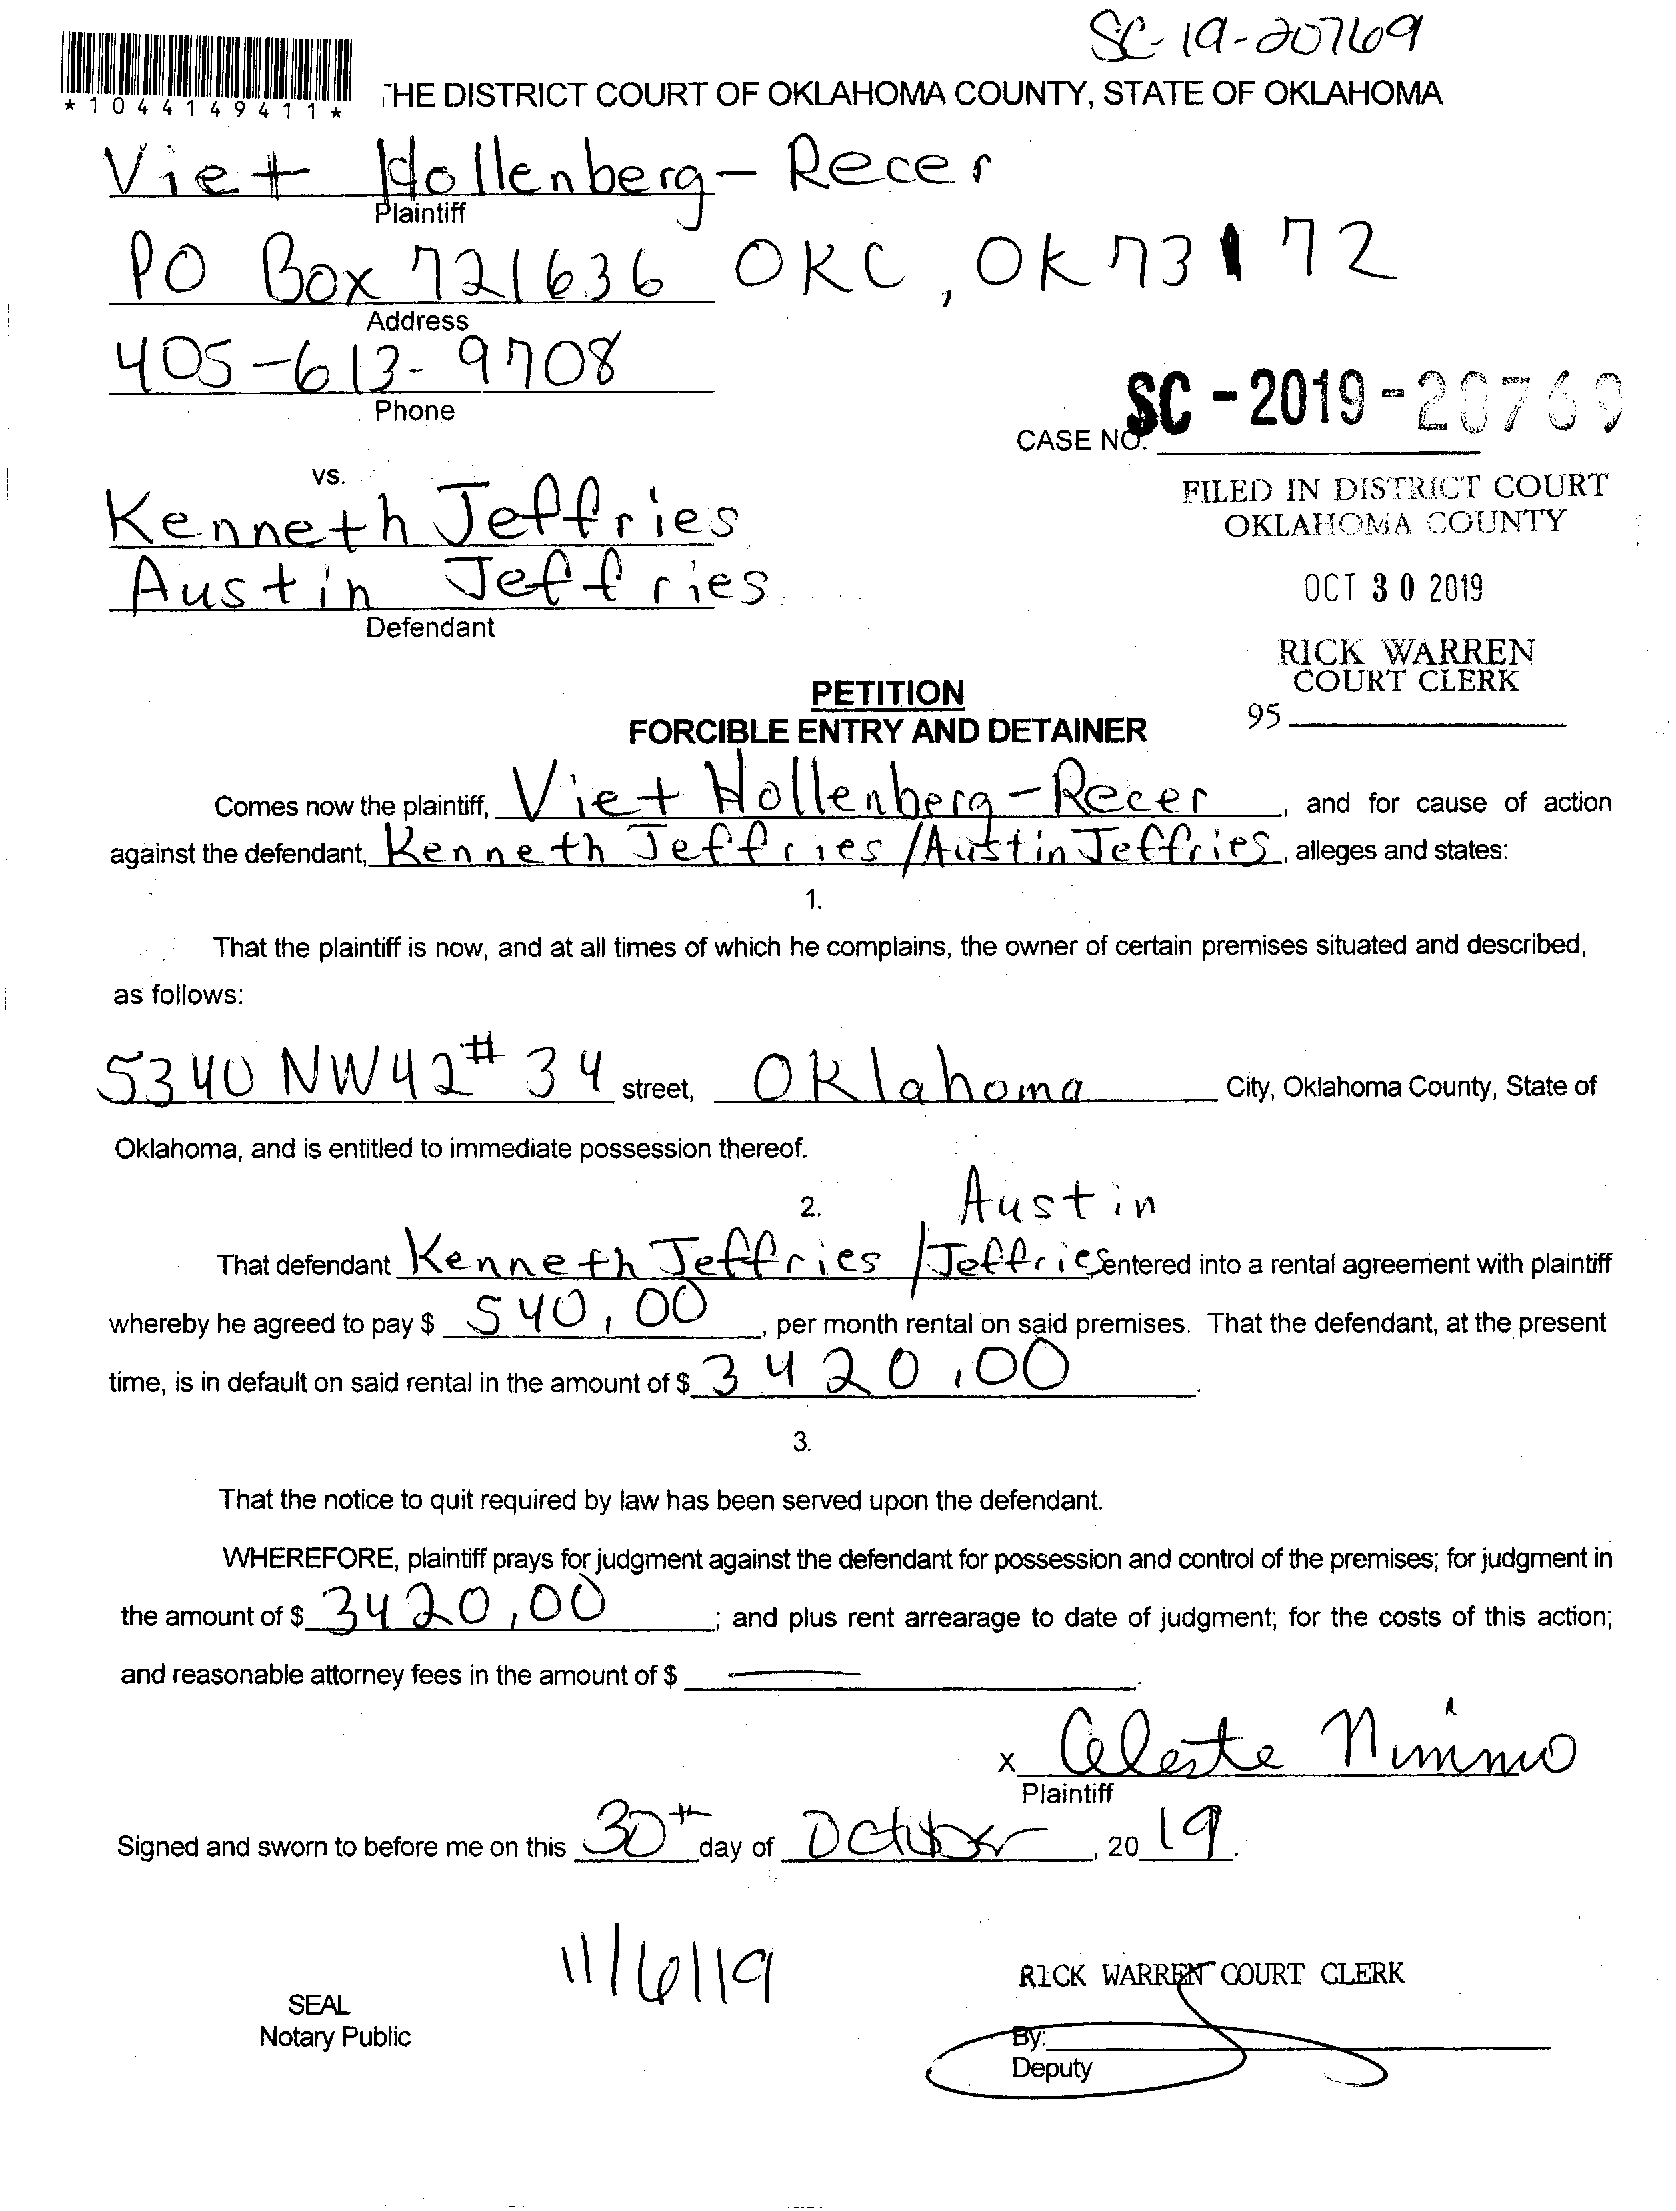 SC-19-20769
*1044149411*
THE DISTRICT COURT OF OKLAHOMA COUNTY, STATE OF OKLAHOMA
Viet Hollenberg-Recer
Plaintiff
PO Box 721636 OKC, OK 73172
Address
405-613-9708
Phone
CASE NO. SC-2019-20769
vs.
FILED IN DISTRICT COURT
OKLAHOMA COUNTY
Kenneth Jeffries
Austin Jeffries
Defendant
OCT 30 2019
RICK WARREN
COURT CLERK
95
PETITION
FORCIBLE ENTRY AND DETAINER
Comes now the plaintiff, Viet Hollenberg-Recer, and for cause of action
against the defendant, Kenneth Jeffries /Austin Jeffries, alleges and states:
1.
That the plaintiff is now, and at all times of which he complains, the owner of certain premises situated and described,
as follows:
5340 NW42 # 34 street, Oklahoma City, Oklahoma County, State of
Oklahoma, and is entitled to immediate possession thereof.
2.
Austin
That defendant Kenneth Jeffries /Jeffries entered into a rental agreement with plaintiff
whereby he agreed to pay $ 540.00, per month rental on said premises. That the defendant, at the present
time, is in default on said rental in the amount of $ 3420.00.
3.
That the notice to quit required by law has been served upon the defendant.
WHEREFORE, plaintiff prays for judgment against the defendant for possession and control of the premises; for judgment in
the amount of $ 3420.00; and plus rent arrearage to date of judgment; for the costs of this action;
and reasonable attorney fees in the amount of $ —.
x Celeste Nimmo
Plaintiff
Signed and sworn to before me on this 30th day of October, 2019.
11/6/19
RICK WARREN COURT CLERK
SEAL
Notary Public
By:
Deputy